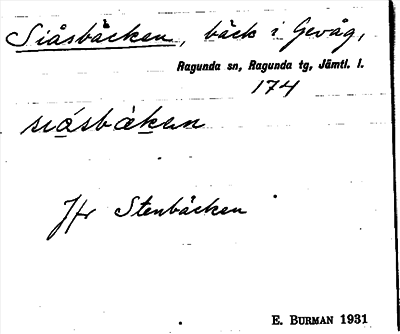 Siåsbäcken, bäck i Gevåg,
Ragunda sn, Ragunda tg, Jämtl. l.
174
siåsbäken
Jfr Stenbäcken
E. BURMAN 1931